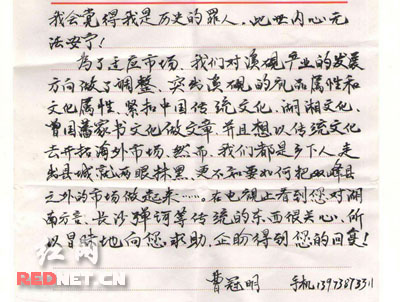 我会觉得我是历史的罪人，此世内心无
法安宁！
为了适应市场，我们对溪砚产业的发展
方向做了调整，突出溪砚的礼品属性和
文化属性，紧扣中国传统文化、湖湘文化、
曾国藩家书文化做文章，并且想以传统文化
去开拓海外市场。然而，我们都是乡下人，走
出县城就两眼抹黑，更不知要如何把双峰县
之外的市场做起来……。在电视上看到您对湖
南方言、长沙弹词等传统的东西很关心，所
以冒昧地向您求助，企盼得到您的回复！
曹冠明 手机13973873311
红网
REDNET.CN